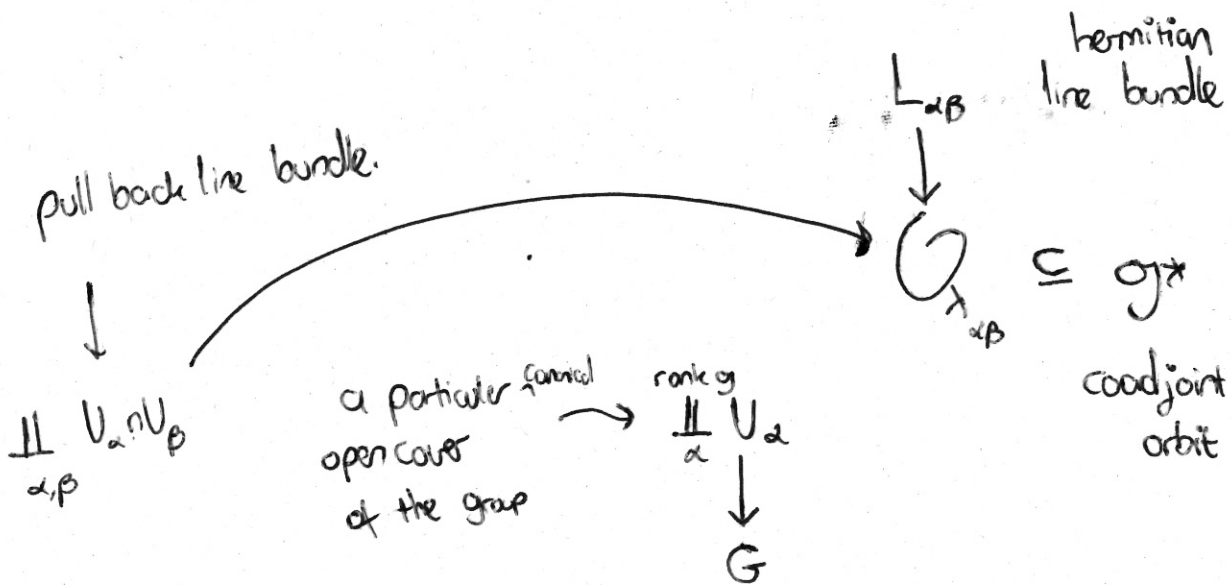 hermitian
L_{αβ} line bundle
pull back line bundle.
O_{λ_{αβ}} ⊆ g*
coadjoint
orbit
∐_{α,β} U_α ∩ U_β
a particular canonical
open cover
of the group
rank g
∐_α U_α
G